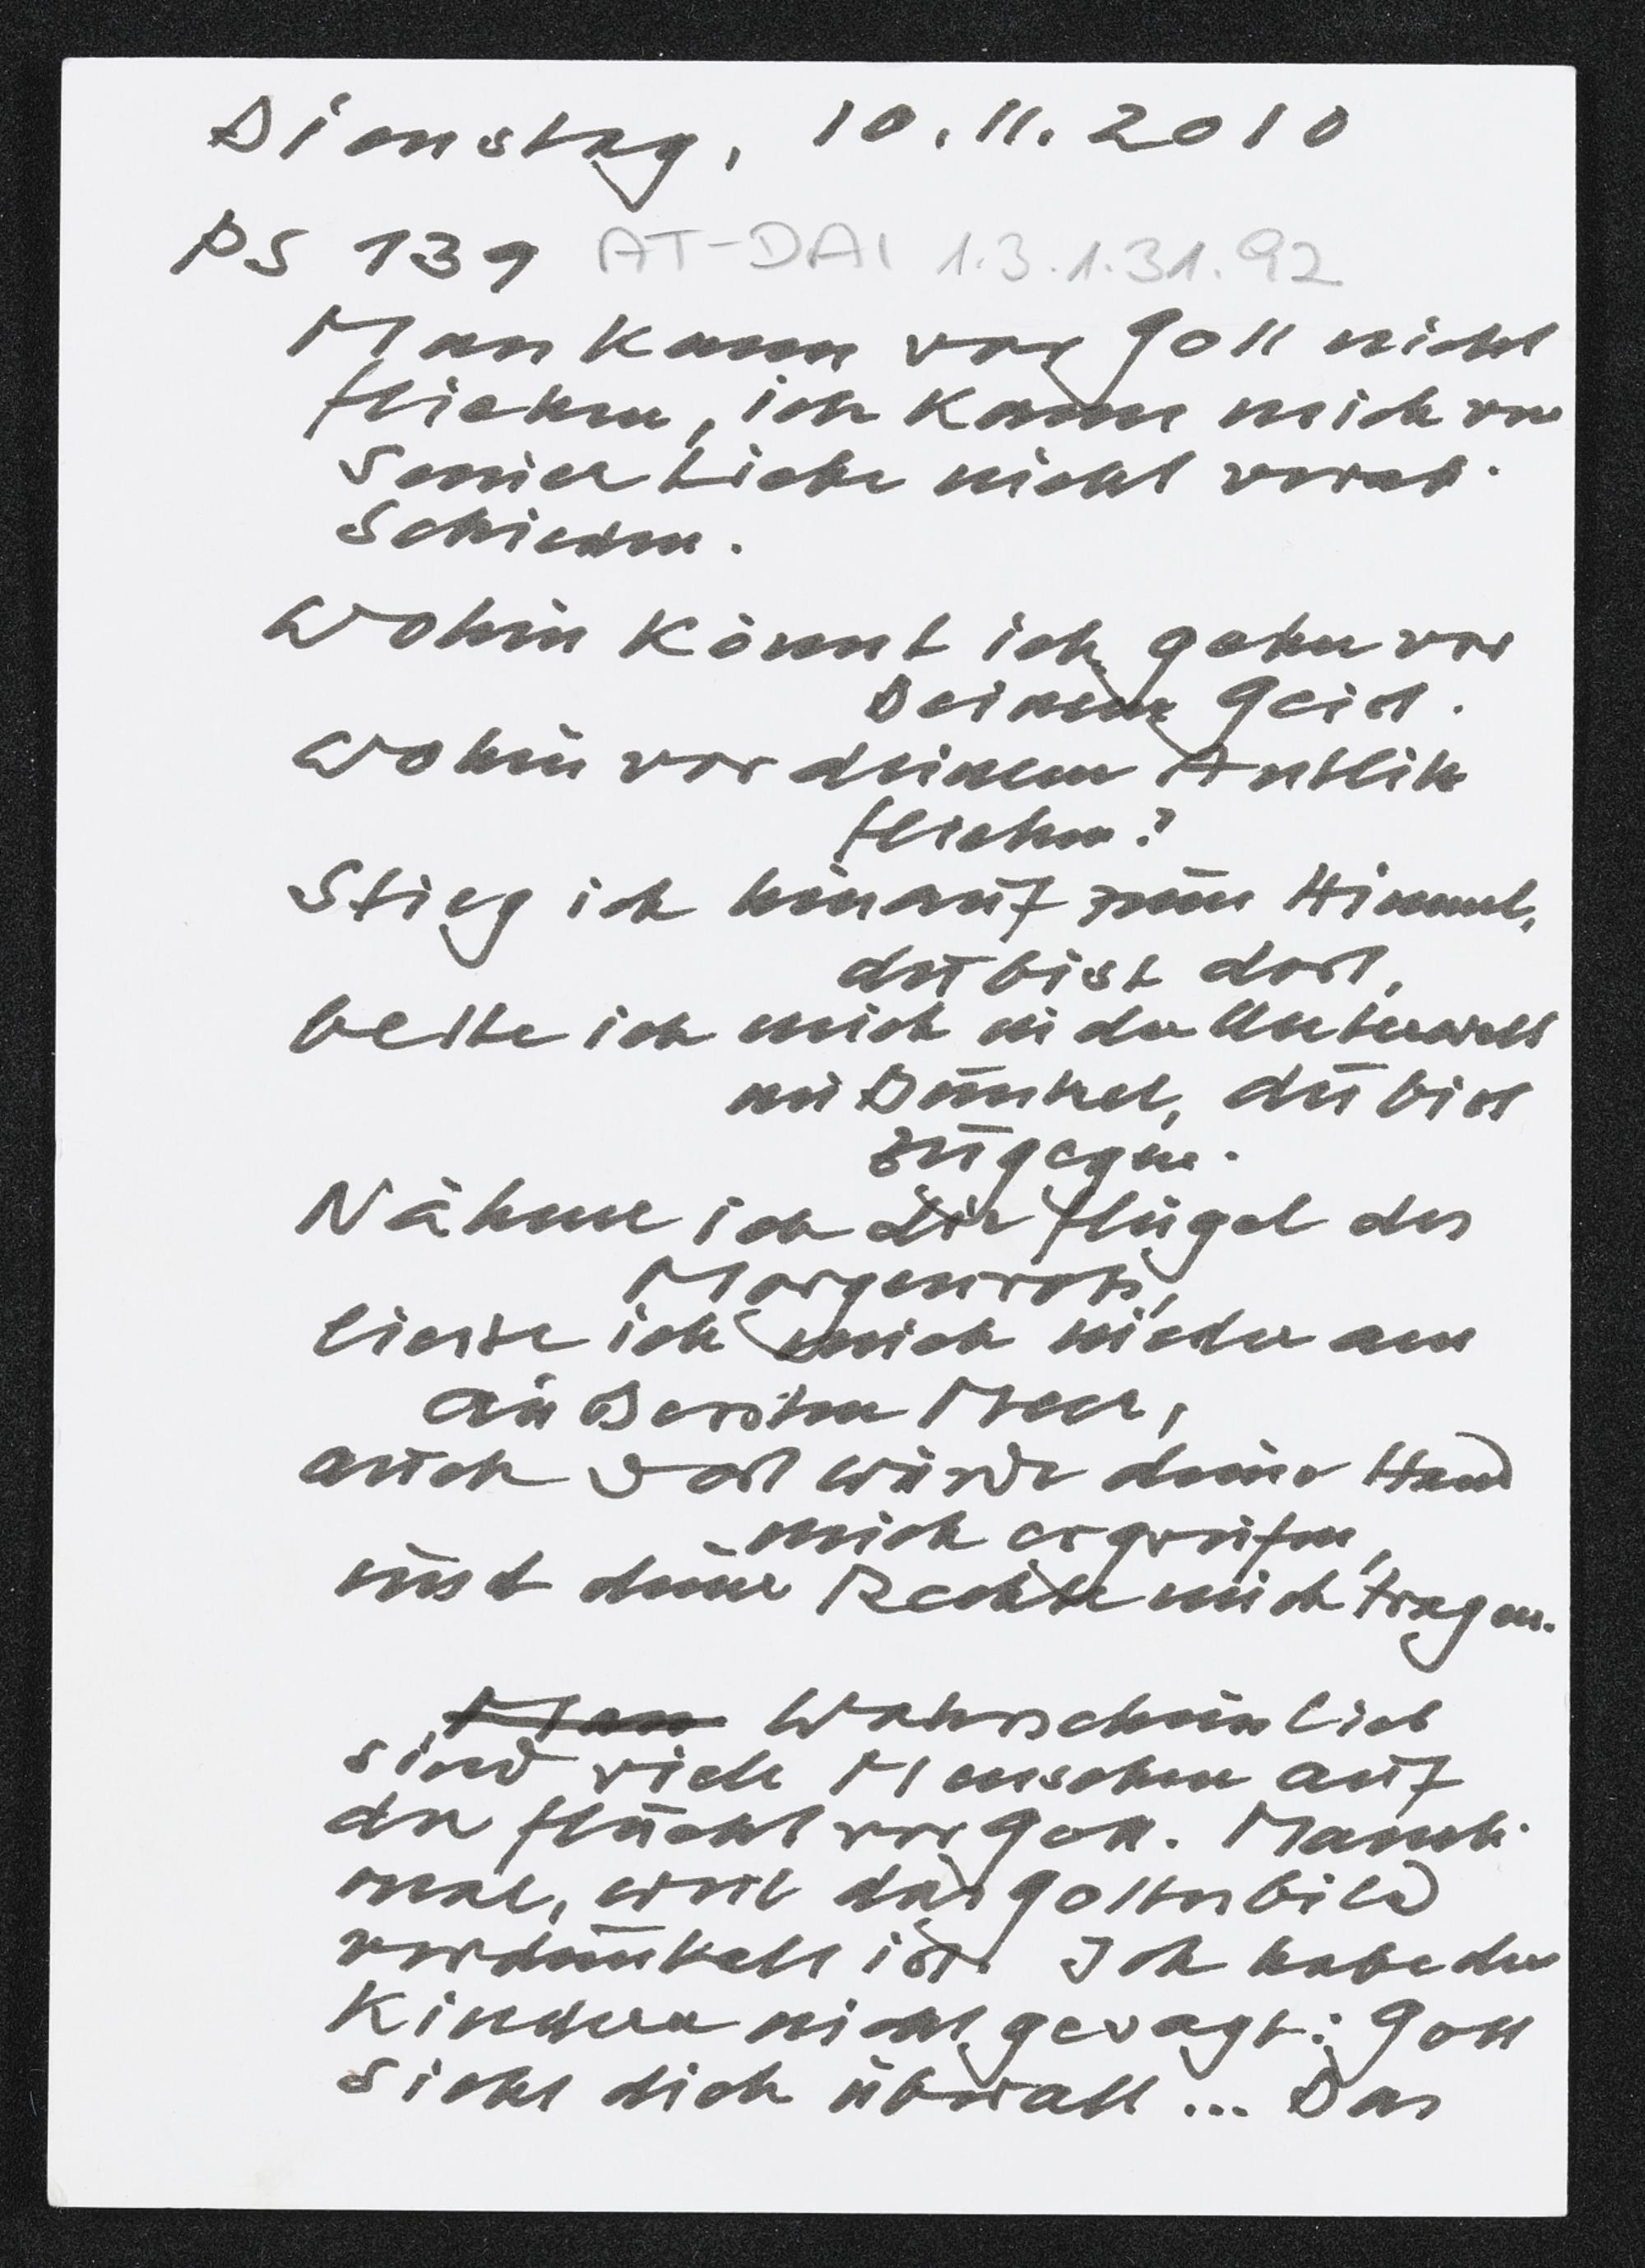 Dienstag, 10.11.2010
PS 139 AT-DAI 1.3.1.31.92
Man kann vor Gott nicht
fliehen, ich kann mich von
Seiner Liebe nicht verab-
schieden.
Wohin könnt ich gehen vor
Deinem Geist.
Wohin vor deinem Antlitz
fliehen?
Stieg ich hinauf zum Himmel,
du bist dort,
bette ich mich in der Unterwelt
im Dunkel, du bist
zugegen.
Nähme ich die Flügel des
Morgenrots,
ließe ich mich nieder am
äußersten Meer,
auch dort würde deine Hand
mich ergreifen,
und deine Rechte mich tragen.
Man Wahrscheinlich
sind viele Menschen auf
der Flucht vor Gott. Manch-
mal, weil das Gottesbild
verdunkelt ist. Ich habe den
Kindern nicht gesagt: Gott
sieht dich überall ... Das